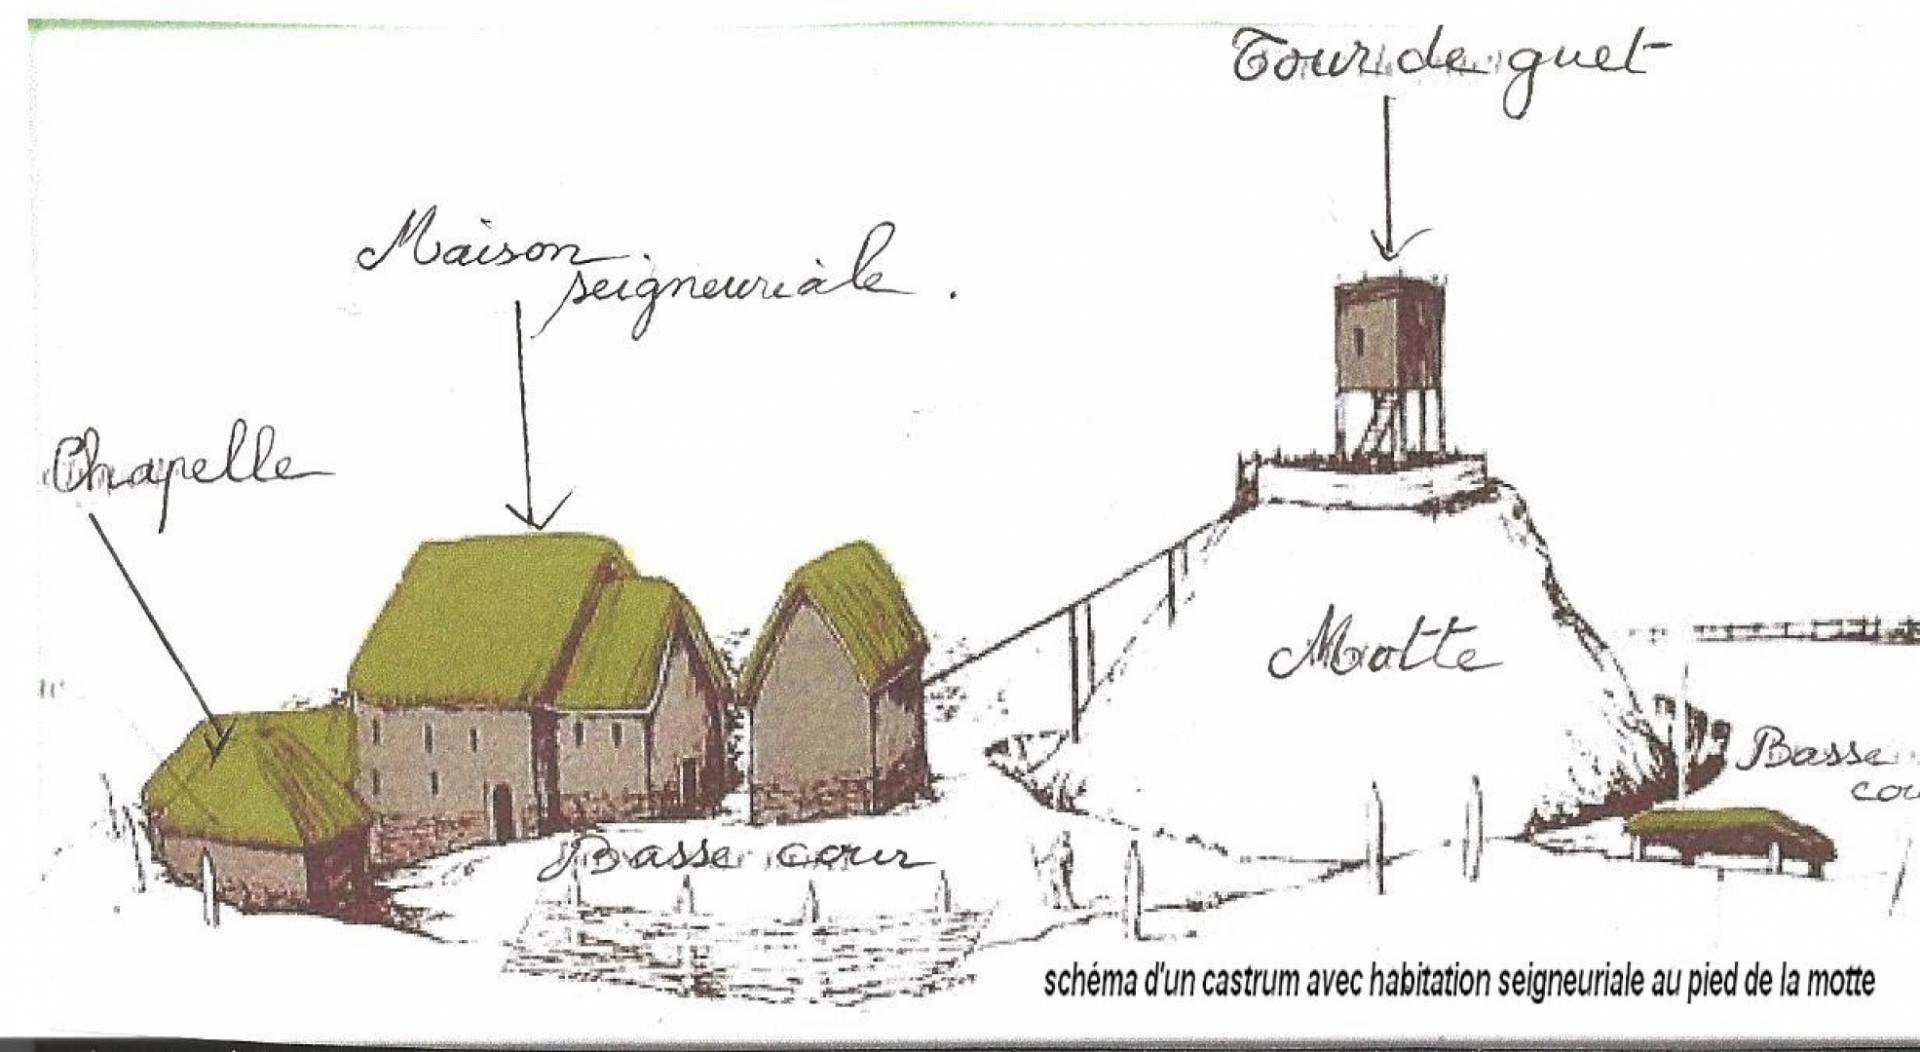 Tour de guet
Maison
seigneuriale.
Chapelle
Motte
Basse
Basse cour
schéma d'un castrum avec habitation seigneuriale au pied de la motte